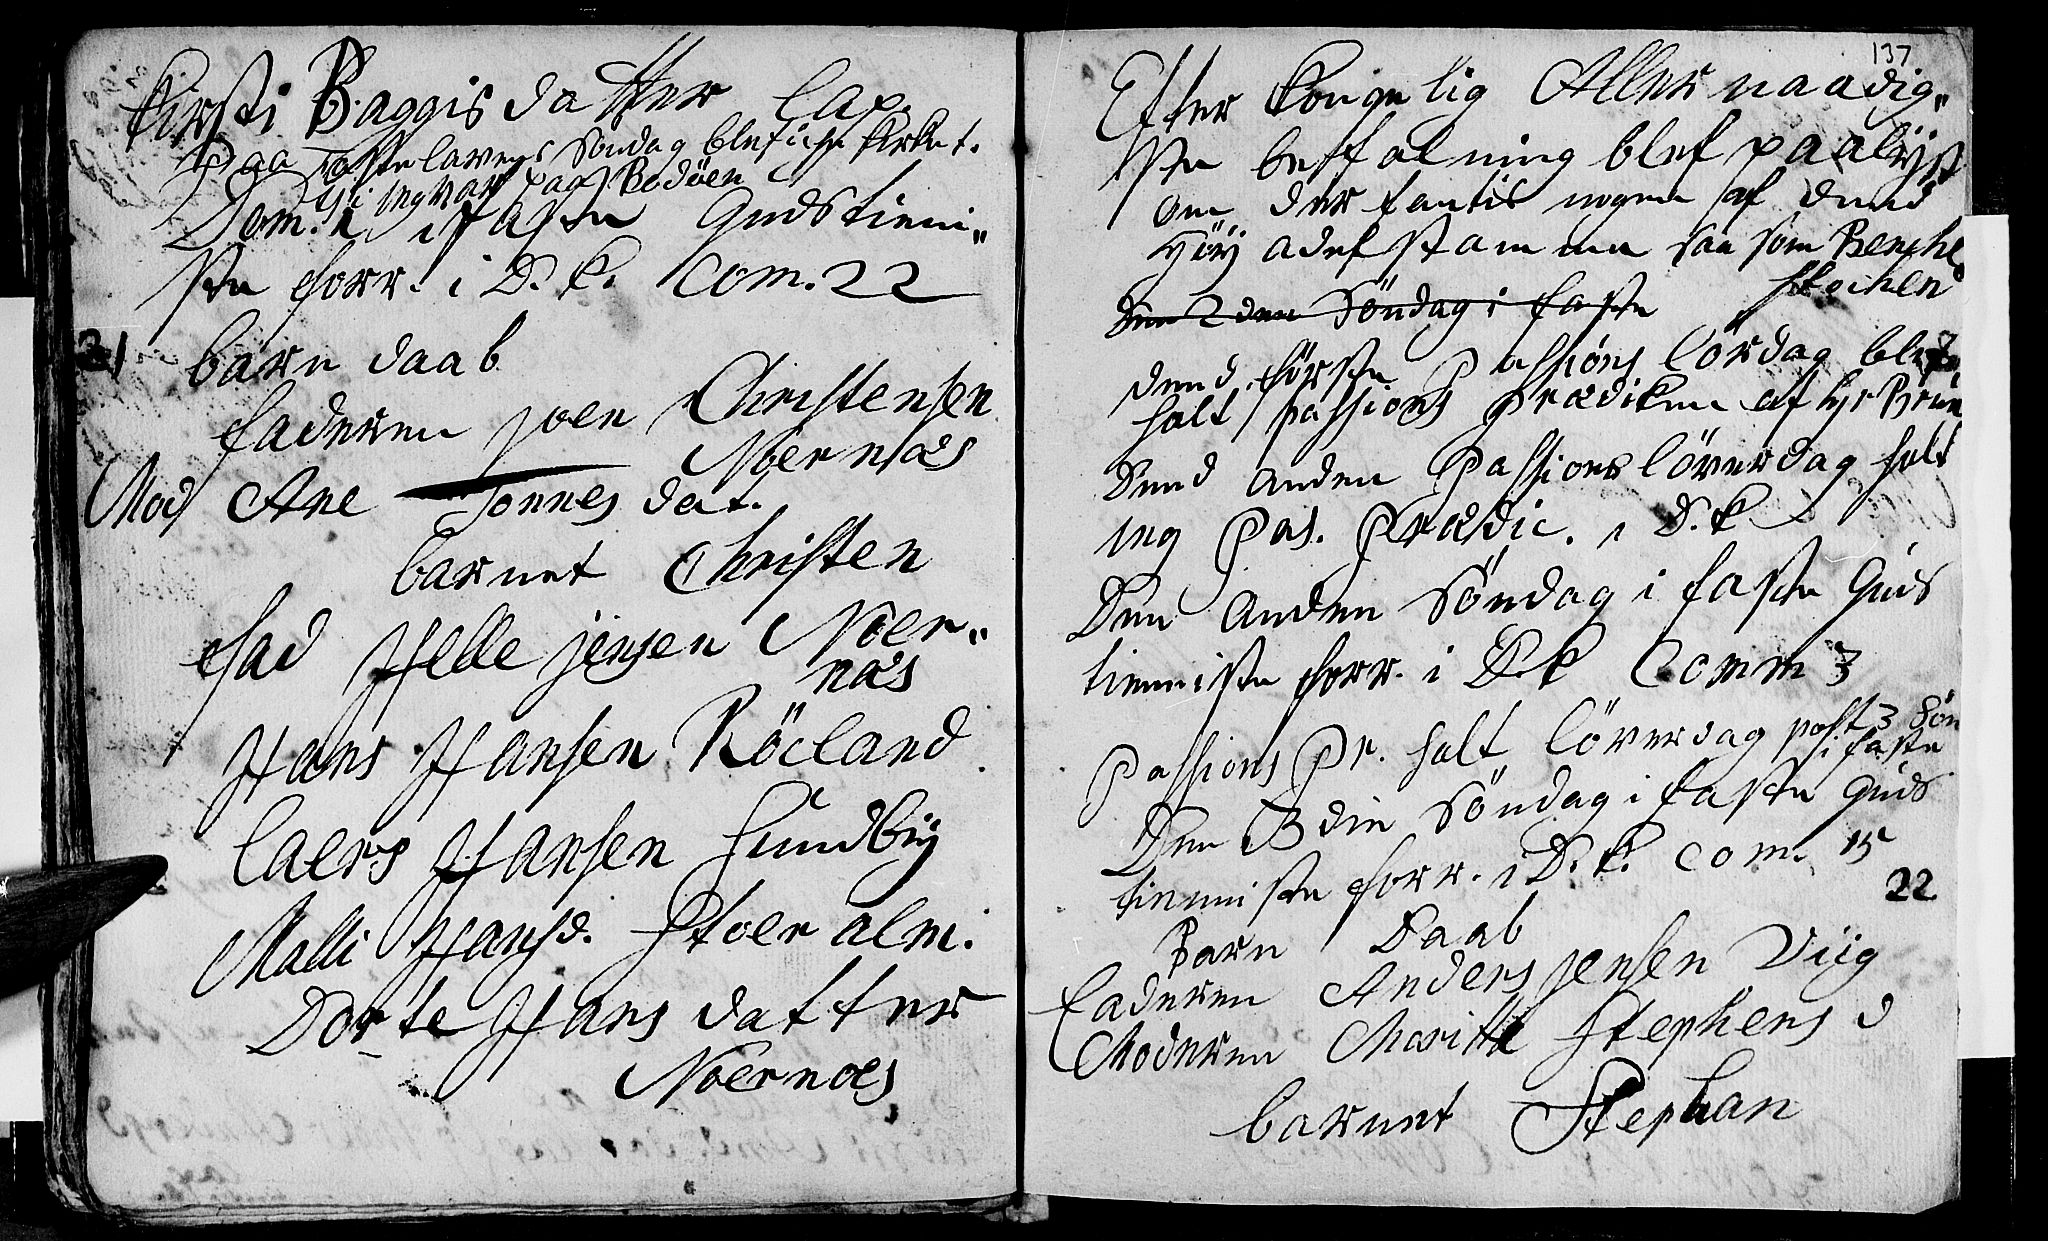 Kirsti Baggisdatter Lap.
Paa Fastelavens Söndag blef icke Kirket.
thi ieg var paa Bodöen
Dom. 1 i Fasten Gudstieni„
ste forr. i D. K. Com. 22
21
barn daab
Faderen Joen Christensen
Noernæs
Mod Ane Tonnes dat.
barnet Christen
Fad Helle Jensen Noer„
næs
Hans Hansen Röcland
Laers Hansen Hundbÿ
Malli Hansd. Stoer alm.
Dorte Hans datter
Noernæs
137
Efter Kongelig Allernaadig„
ste befalning blef paalÿst
om der fantis nogen af dend
Höÿ adel stamme saa som Benche
stochen
Den 2den Söndag i faste
dend förste Passions lördag blef
holt passions Prædiken af Hr Brun
Dend anden Passions löverdag holt
ieg Pas. Prædic. i D. K
Den anden Söndag i faste Guds
tienniste forr. i D. K Comm 3
Passions Pr. holt löverdag post 3 Sön
i faste
Den 3die Söndag i faste Guds
tienniste forr. i D. K. Com. 15
22
Barn Daab
Faderen Anders Jensen Viig
Moderen Marite Stephens d
barnet Stephan